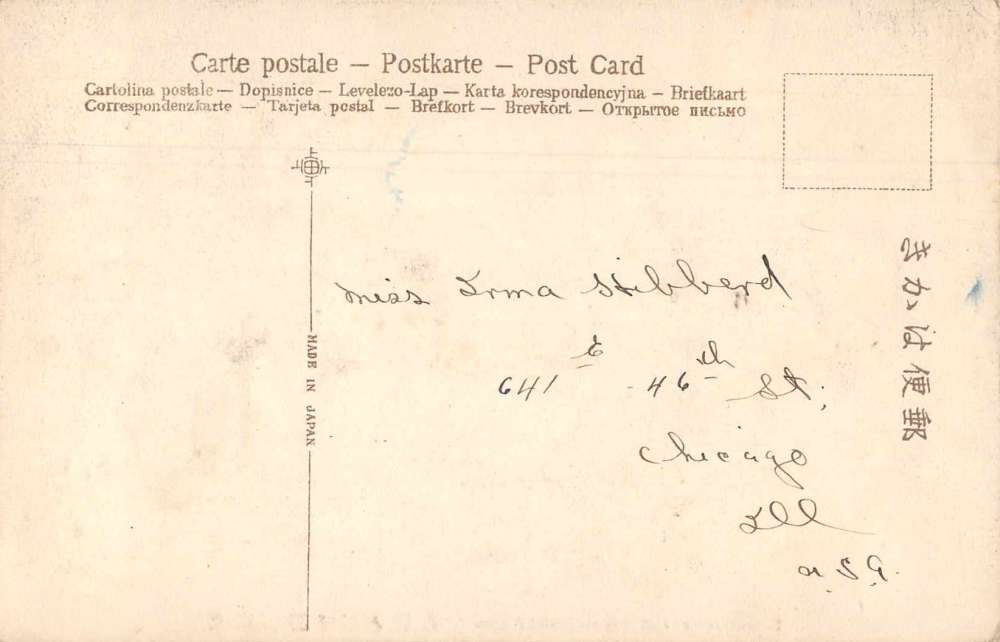 Carte postale — Postkarte — Post Card
Cartolina postale — Dopisnice — Levelezo-Lap — Karta korespondencyjna — Briefkaart
Correspondenzkarte — Tarjeta postal — Brefkort — Brevkort — Открытое письмо
MADE IN JAPAN
Miss Irma Hibberd
641 E 46th St.
Chicago
Ill
U.S.A.
きかは便郵